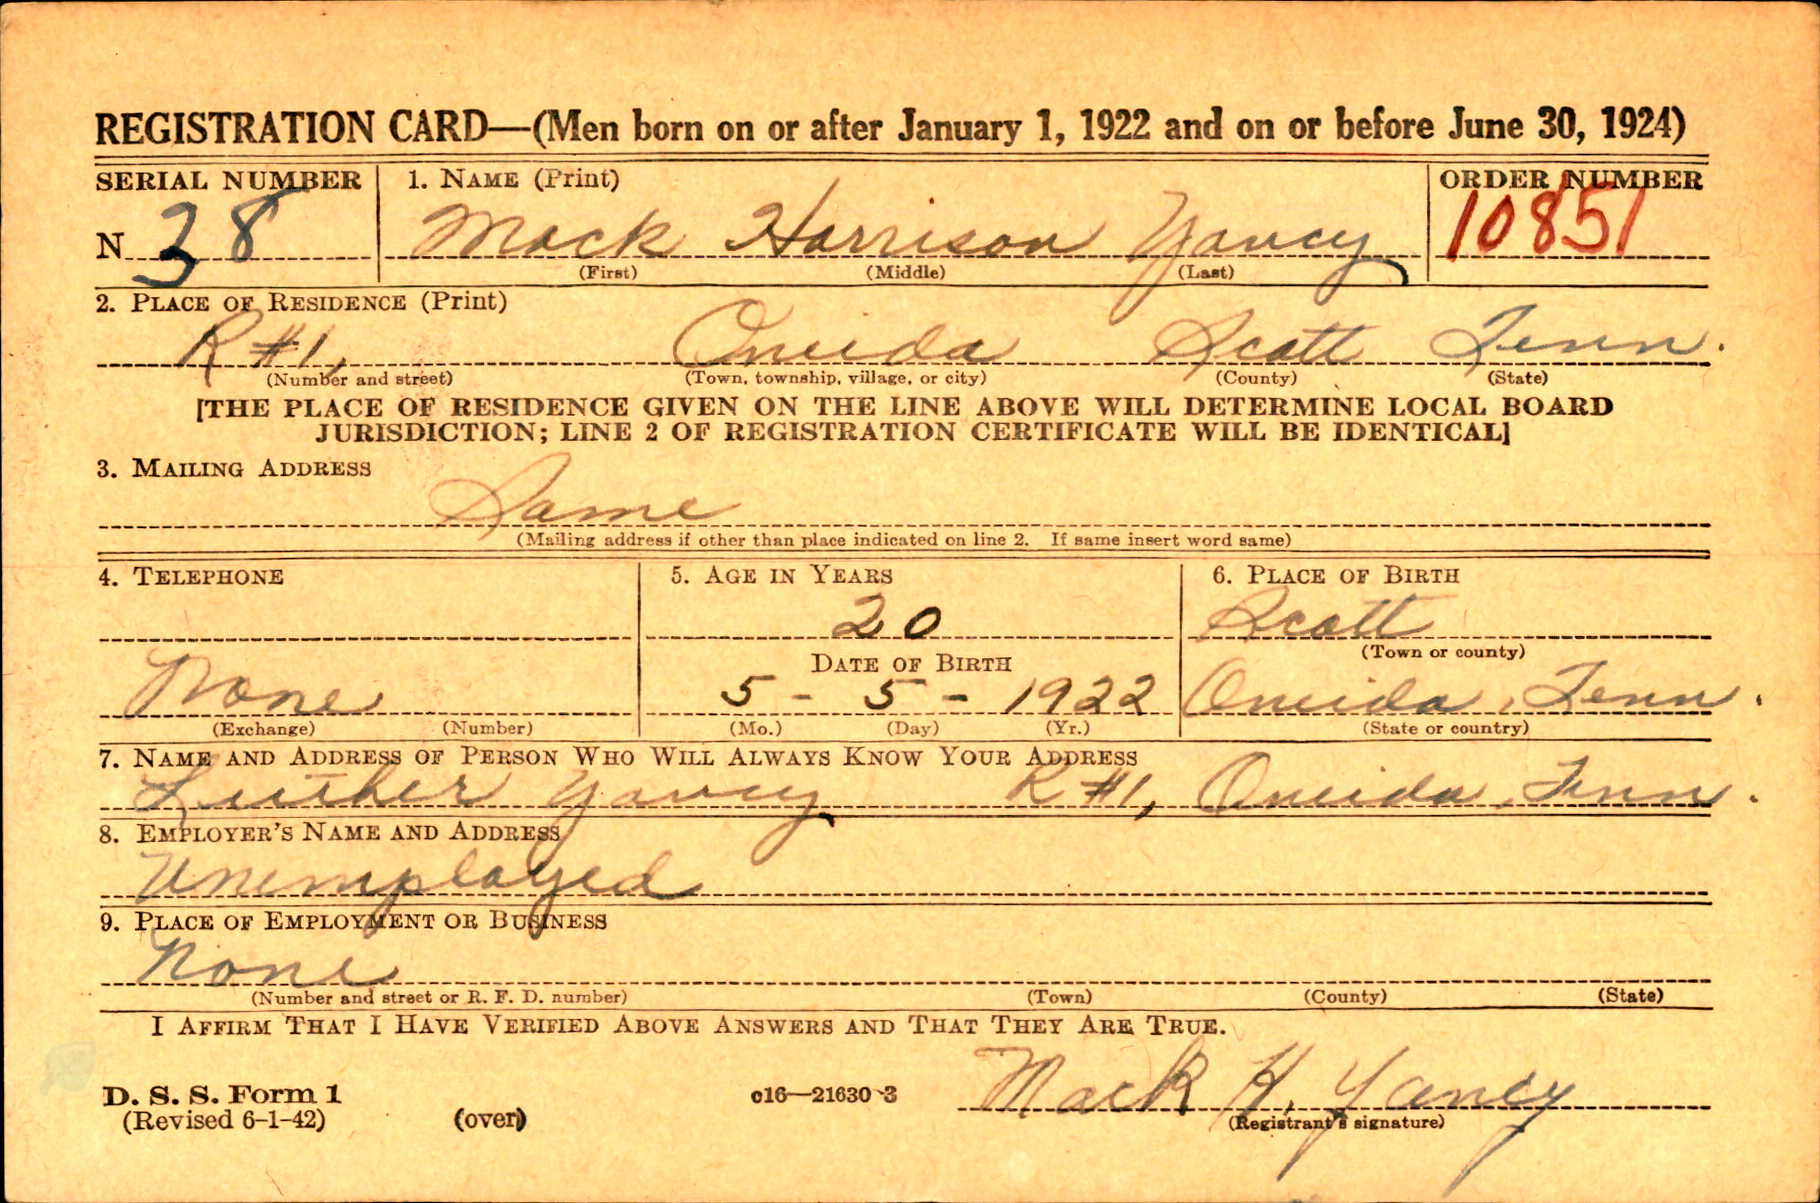 REGISTRATION CARD—(Men born on or after January 1, 1922 and on or before June 30, 1924)
SERIAL NUMBER 1. NAME (Print) ORDER NUMBER
N 38 Mack Harrison Yancy 10851
(First) (Middle) (Last)
2. PLACE OF RESIDENCE (Print)
R #1, Oneida Scott Tenn.
(Number and street) (Town, township, village, or city) (County) (State)
[THE PLACE OF RESIDENCE GIVEN ON THE LINE ABOVE WILL DETERMINE LOCAL BOARD
JURISDICTION; LINE 2 OF REGISTRATION CERTIFICATE WILL BE IDENTICAL]
3. MAILING ADDRESS
Same
(Mailing address if other than place indicated on line 2. If same insert word same)
4. TELEPHONE 5. AGE IN YEARS 6. PLACE OF BIRTH
20 Scott
DATE OF BIRTH (Town or county)
None 5 - 5 - 1922 Oneida, Tenn.
(Exchange) (Number) (Mo.) (Day) (Yr.) (State or country)
7. NAME AND ADDRESS OF PERSON WHO WILL ALWAYS KNOW YOUR ADDRESS
Luther Yancy R #1, Oneida, Tenn.
8. EMPLOYER'S NAME AND ADDRESS
Unemployed
9. PLACE OF EMPLOYMENT OR BUSINESS
None
(Number and street or R. F. D. number) (Town) (County) (State)
I AFFIRM THAT I HAVE VERIFIED ABOVE ANSWERS AND THAT THEY ARE TRUE.
D. S. S. Form 1 c16—21630-3 Mack H. Yancy
(Revised 6-1-42) (over) (Registrant's signature)